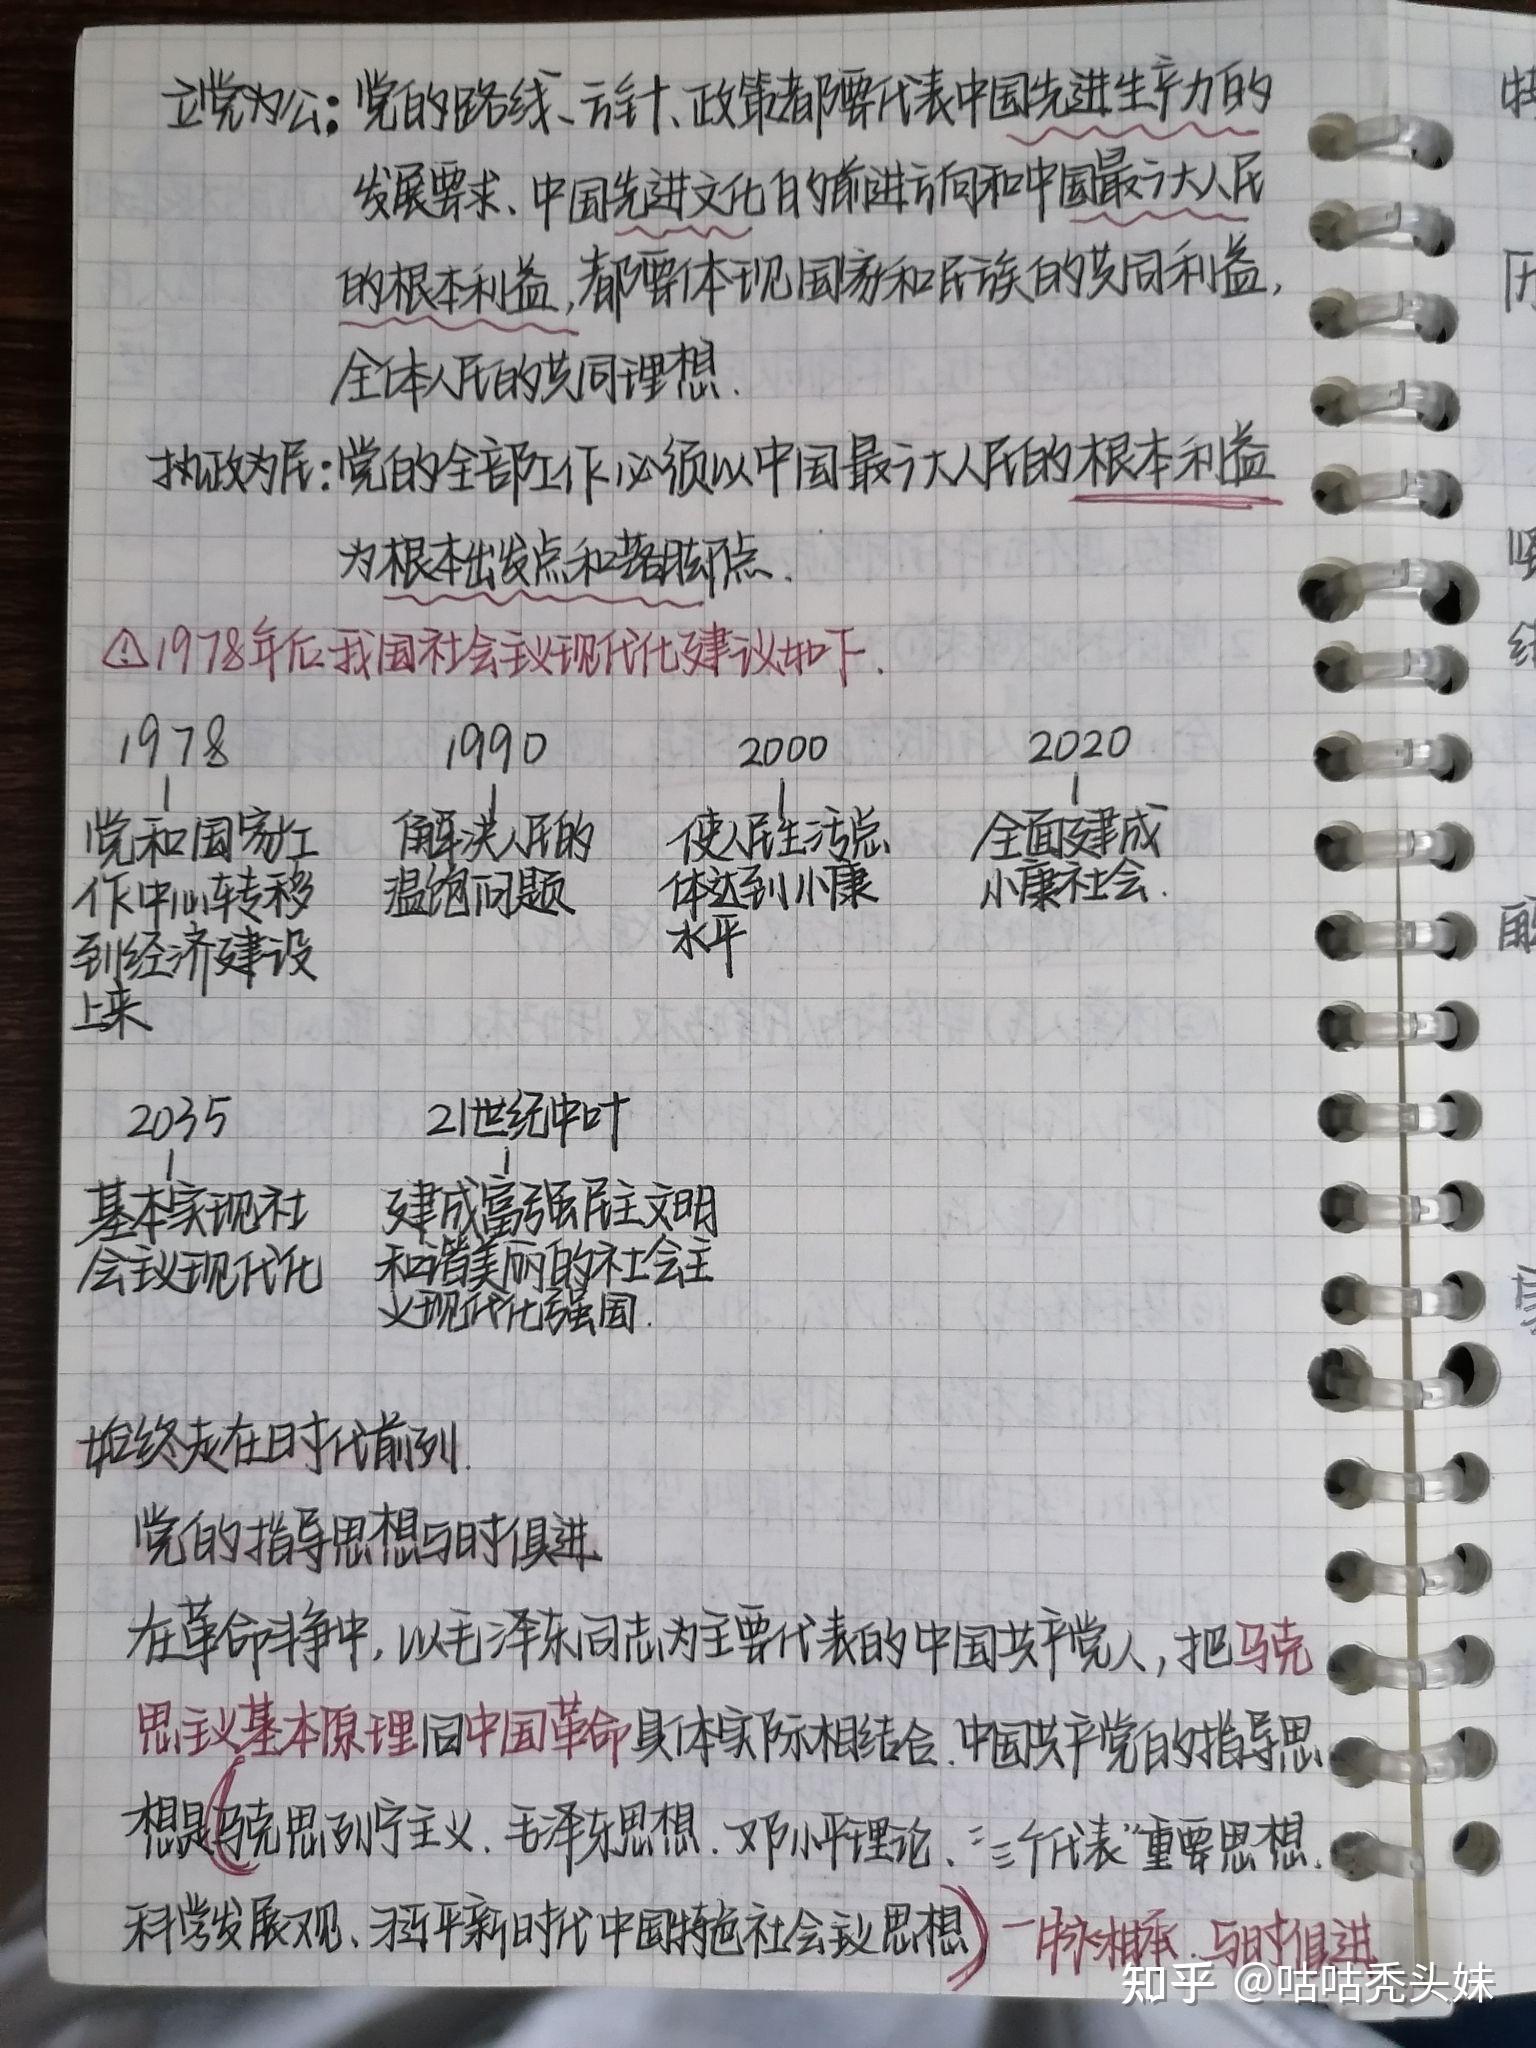 立党为公：党的路线、方针、政策都要代表中国先进生产力的
发展要求、中国先进文化的前进方向和中国最广大人民
的根本利益，都要体现国家和民族的共同利益，
全体人民的共同理想.
执政为民：党的全部工作必须以中国最广大人民的根本利益
为根本出发点和落脚点.
1978年后我国社会主义现代化建议如下.
1978 1990 2000 2020
党和国家工 解决人民的 使人民生活总 全面建成
作中心转移 温饱问题 体达到小康 小康社会.
到经济建设 水平
上来
2035 21世纪中叶
基本实现社 建成富强民主文明
会主义现代化 和谐美丽的社会主
义现代化强国.
始终走在时代前列.
党的指导思想与时俱进
在革命斗争中，以毛泽东同志为主要代表的中国共产党人，把马克
思主义基本原理同中国革命具体实际相结合.中国共产党的指导思
想是(马克思列宁主义、毛泽东思想、邓小平理论、“三个代表”重要思想、
科学发展观、习近平新时代中国特色社会主义思想)一脉相承、与时俱进
知乎 @咕咕秃头妹